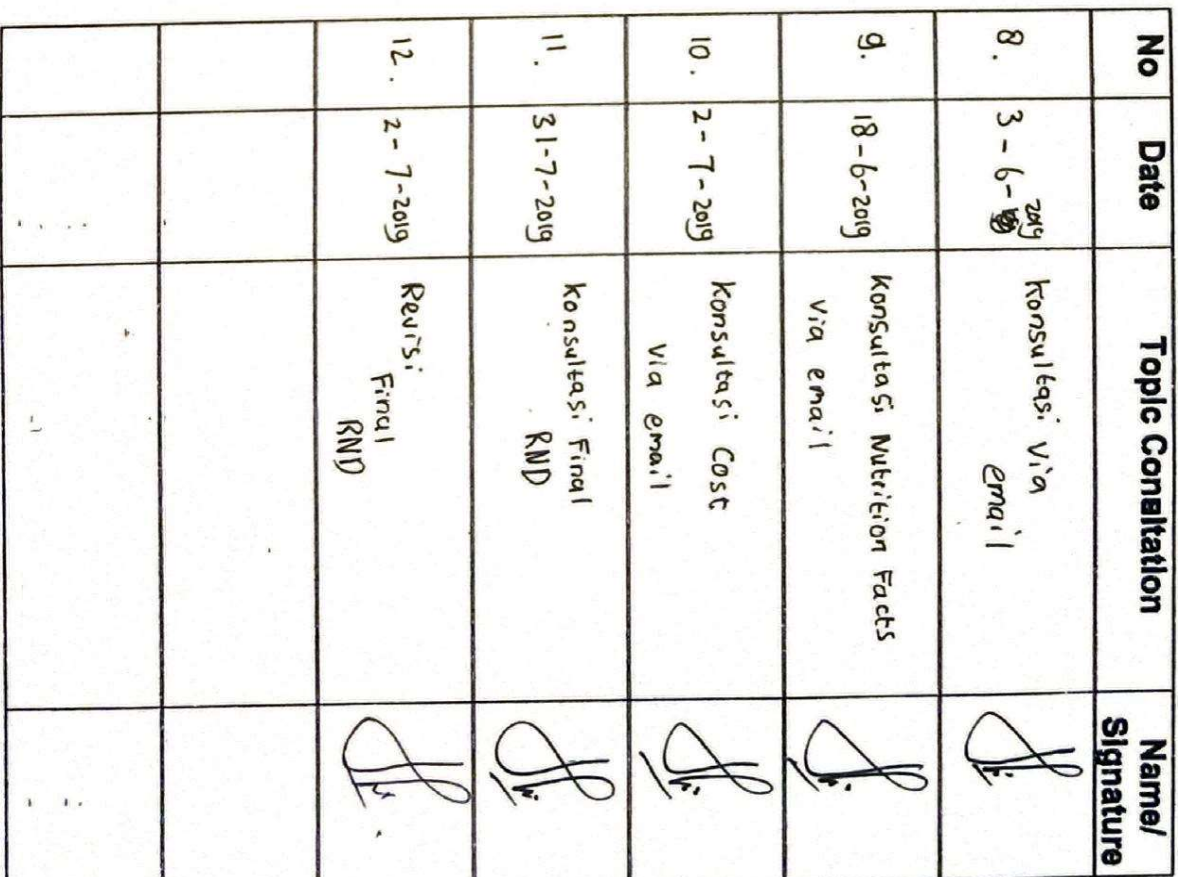 No Date Topic Consltation Name/
Signature
8. 3-6-2019 Konsultasi via
email
9. 18-6-2019 Konsultasi Nutrition Facts
via email
10. 2-7-2019 Konsultasi Cost
via email
11. 31-7-2019 Konsultasi Final
RND
12. 2-7-2019 Revisi
Final
RND